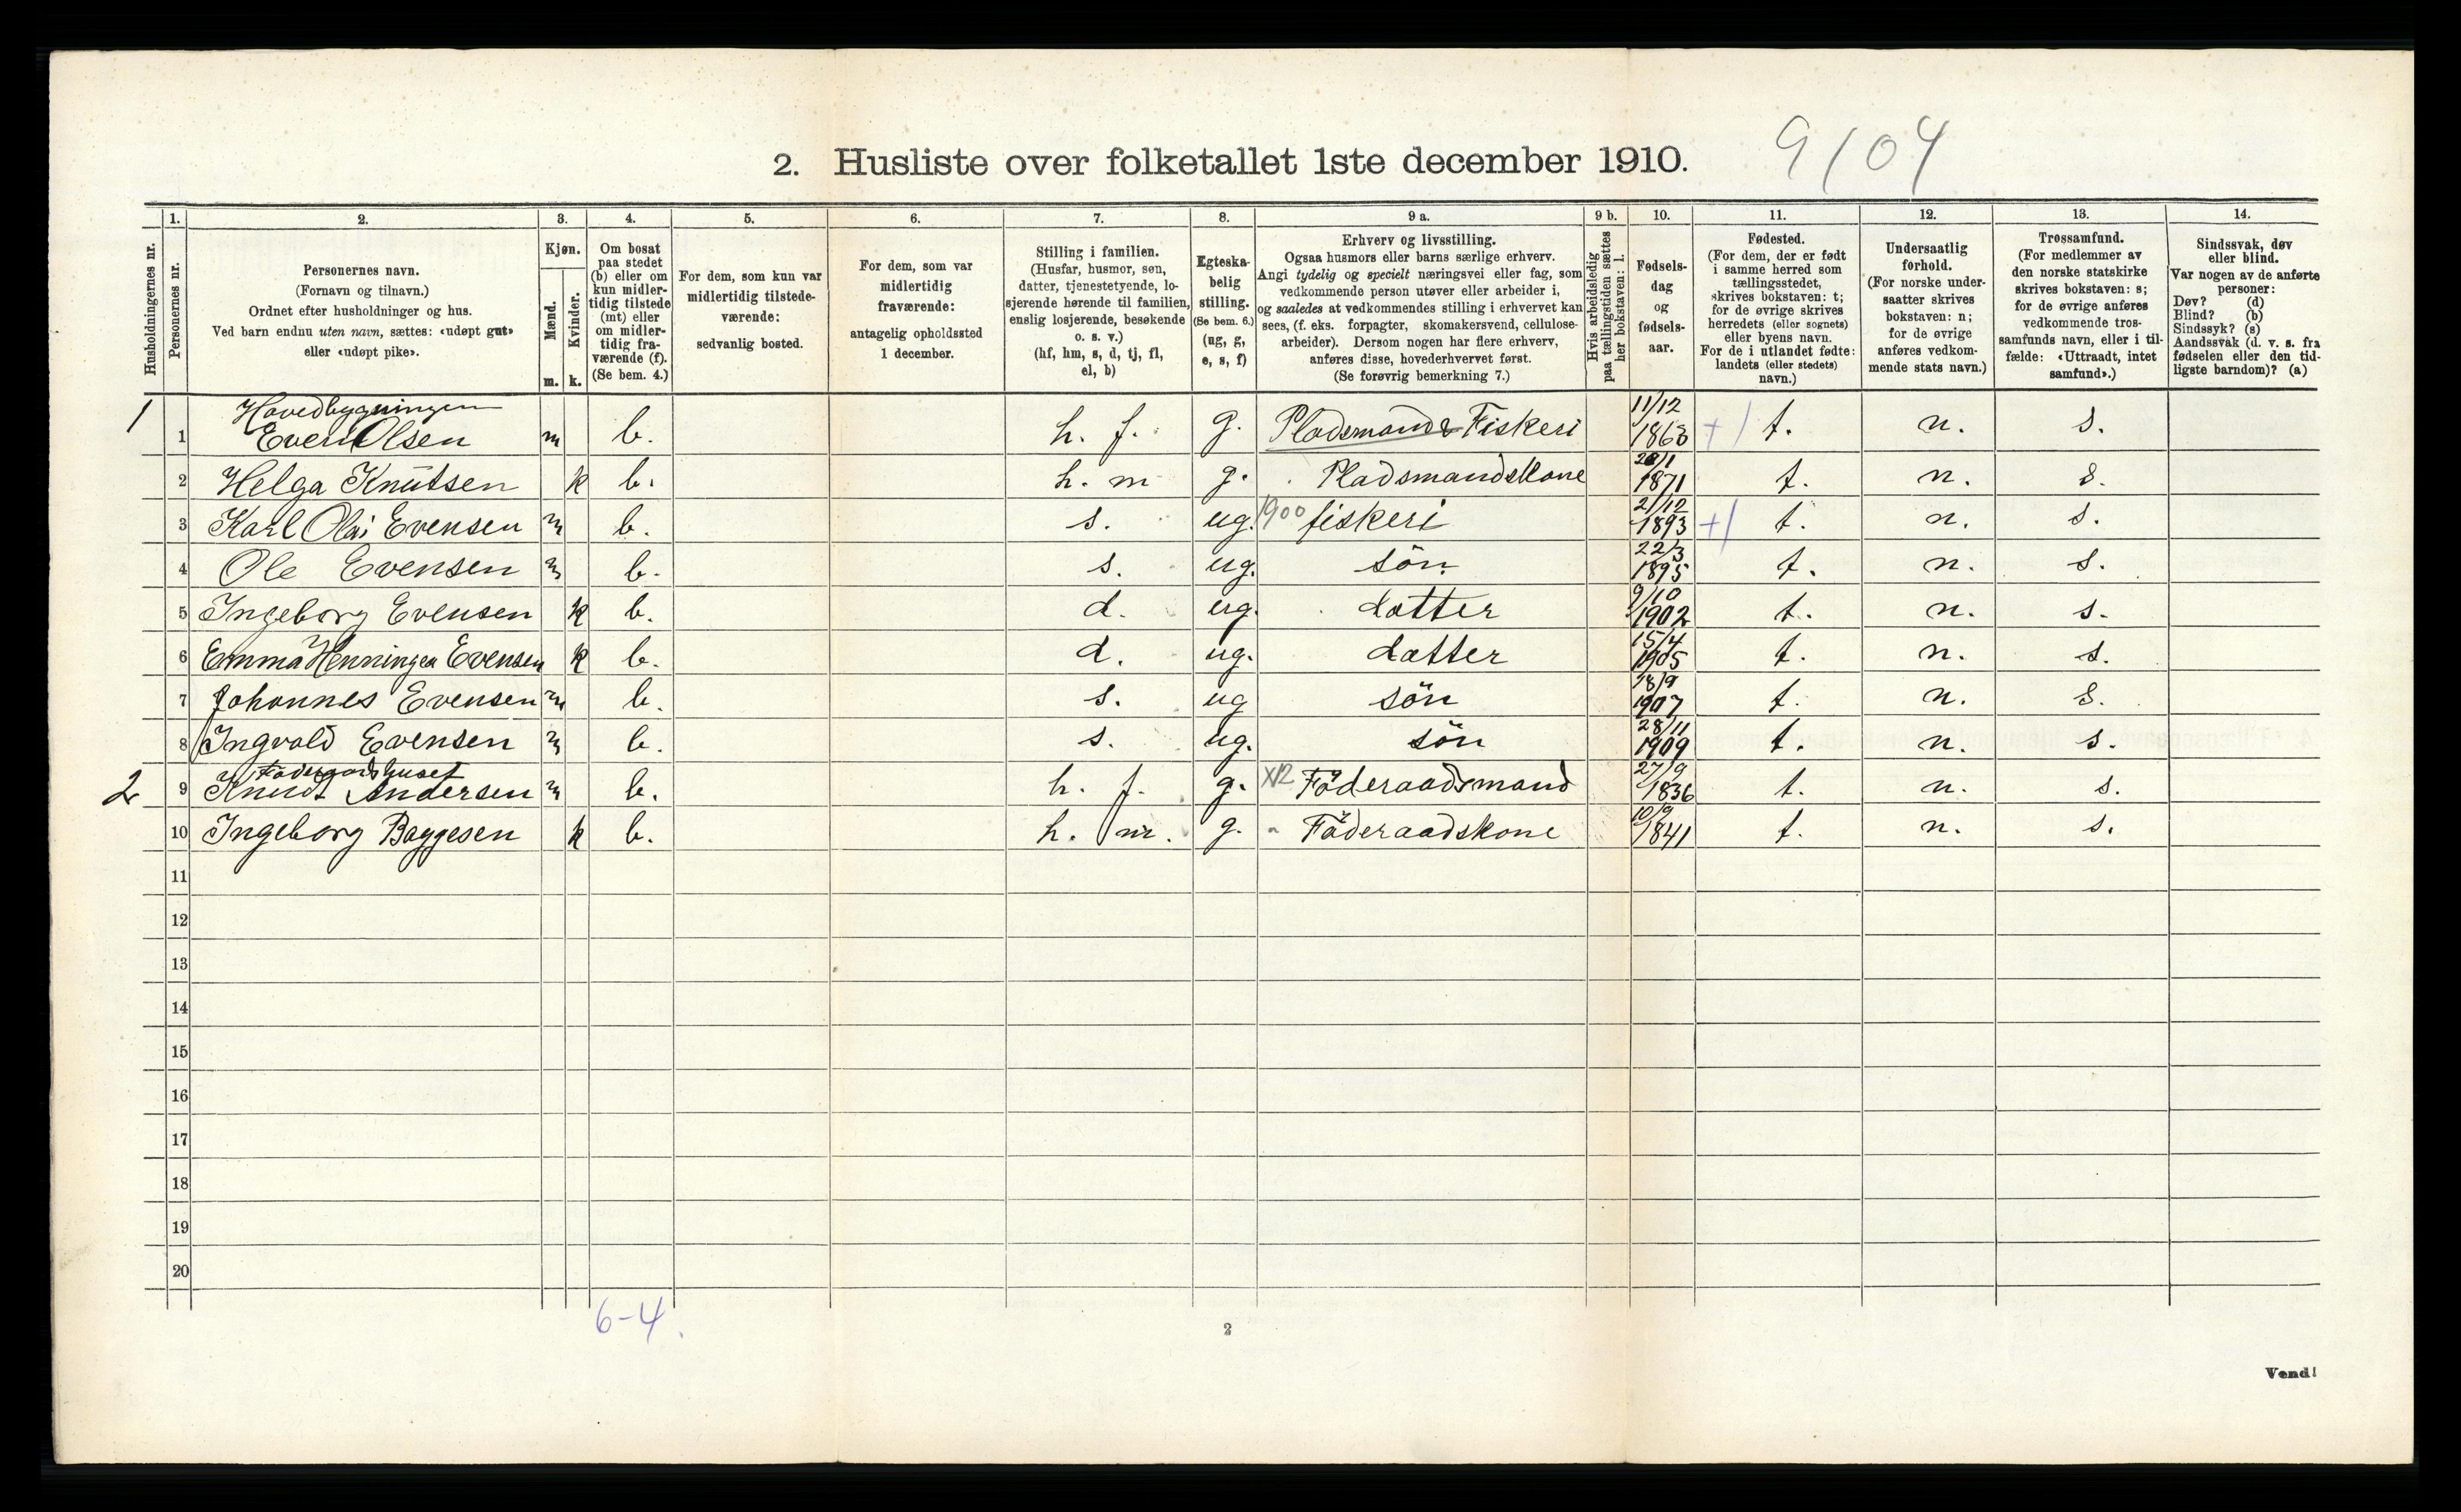 2. Husliste over folketallet 1ste december 1910. 9/04
1. 2. 3. 4. 5. 6. 7. 8. 9 a. 9 b. 10. 11. 12. 13. 14.
Husholdningernes nr.
Personernes nr.
Personernes navn.
(Fornavn og tilnavn.)
Ordnet efter husholdninger og hus.
Ved barn endnu uten navn, sættes: «udøpt gut»
eller «udøpt pike».
Kjøn.
Mænd.
m.
Kvinder.
k.
Om bosat
paa stedet
(b) eller om
kun midler-
tidig tilstede
(mt) eller
om midler-
tidig fra-
værende (f).
(Se bem. 4.)
For dem, som kun var
midlertidig tilstede-
værende:
sedvanlig bosted.
For dem, som var
midlertidig
fraværende:
antagelig opholdssted
1 december.
Stilling i familien.
(Husfar, husmor, søn,
datter, tjenestetyende, lo-
sjerende hørende til familien,
enslig losjerende, besøkende
o. s. v.)
(hf, hm, s, d, tj, fl,
el, b)
Egteska-
belig
stilling.
(Se bem. 6.)
(ug, g,
e, s, f)
Erhverv og livsstilling.
Ogsaa husmors eller barns særlige erhverv.
Angi tydelig og specielt næringsvei eller fag, som
vedkommende person utøver eller arbeider i,
og saaledes at vedkommendes stilling i erhvervet kan
sees, (f. eks. forpagter, skomakersvend, cellulose-
arbeider). Dersom nogen har flere erhverv,
anføres disse, hovederhvervet først.
(Se forøvrig bemerkning 7.)
Hvis arbeidsledig
paa tællingstiden sættes
her bokstaven: l.
Fødsels-
dag
og
fødsels-
aar.
Fødested.
(For dem, der er født
i samme herred som
tællingsstedet,
skrives bokstaven: t;
for de øvrige skrives
herredets (eller sognets)
eller byens navn.
For de i utlandet fødte:
landets (eller stedets)
navn.)
Undersaatlig
forhold.
(For norske under-
saatter skrives
bokstaven: n;
for de øvrige
anføres vedkom-
mende stats navn.)
Trossamfund.
(For medlemmer av
den norske statskirke
skrives bokstaven: s;
for de øvrige anføres
vedkommende tros-
samfunds navn, eller i til-
fælde: «Uttraadt, intet
samfund».)
Sindssvak, døv
eller blind.
Var nogen av de anførte
personer:
Døv? (d)
Blind? (b)
Sindssyk? (s)
Aandssvak (d. v. s. fra
fødselen eller den tid-
ligste barndom)? (a)
Hovedbygningen
1 1 Even Olsen m b. h. f. g. Pladsmand & Fiskeri 11/12 1863 +/ t. n. s.
2 Helga Knutsen k b. h. m g. Pladsmandskone 28/1 1871 t. n. s.
3 Karl Olai Evensen m b. s. ug. 1900 fiskeri 21/12 1893 +/ t. n. s.
4 Ole Evensen m b. s. ug. sön 22/3 1895 t. n. s.
5 Ingeborg Evensen k b. d. ug. datter 9/10 1902 t. n. s.
6 Emma Henningea Evensen k b. d. ug. datter 15/4 1905 t. n. s.
7 Johannes Evensen m b. s. ug sön 18/9 1907 t. n. s.
8 Ingvald Evensen m b. s. ug. sön 28/11 1909 t. n. s.
2 9 Knudt Andersen m b. h. f. g. X12 Föderaadsmand 27/9 1836 t. n. s.
10 Ingeborg Baggesen k b. h. m. g. " Föderaadskone 10/9 1841 t. n. s.
11
12
13
14
15
16
17
18
19
20
6-4.
2
Vend!